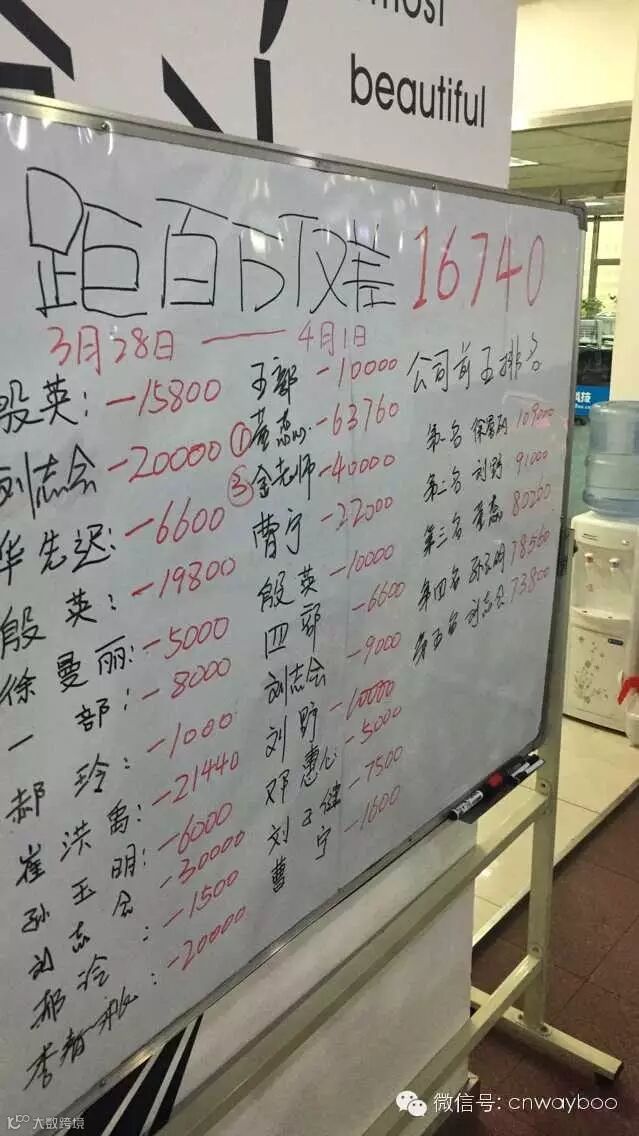 most
beautiful
距百万仅差 16740
3月28日 —— 4月1日
殷英: -15800
刘志会 -20000
华先迟: -6600
殷英: -19800
徐曼丽: -5000
一部: -8000
郝玲: -1000
崔洪禹: -21440
孙玉明: -6000
刘志会 -30000
郝玲: -1500
李 : -20000
五部 -10000
① 董蕊 -63760
③ 金老师 -40000
曹宁 -22000
殷英 -10000
四部 -6600
刘志会 -9000
刘野 -10000
邓惠心 -5000
刘玉健 -7500
曹宁 -1600
公司前五排名
第一名 徐曼丽 109000
第二名 刘野 91000
第三名 董蕊 80260
第四名 孙玉明 78560
第五名 刘志会 73800
微信号: cnwayboo
大数跨境